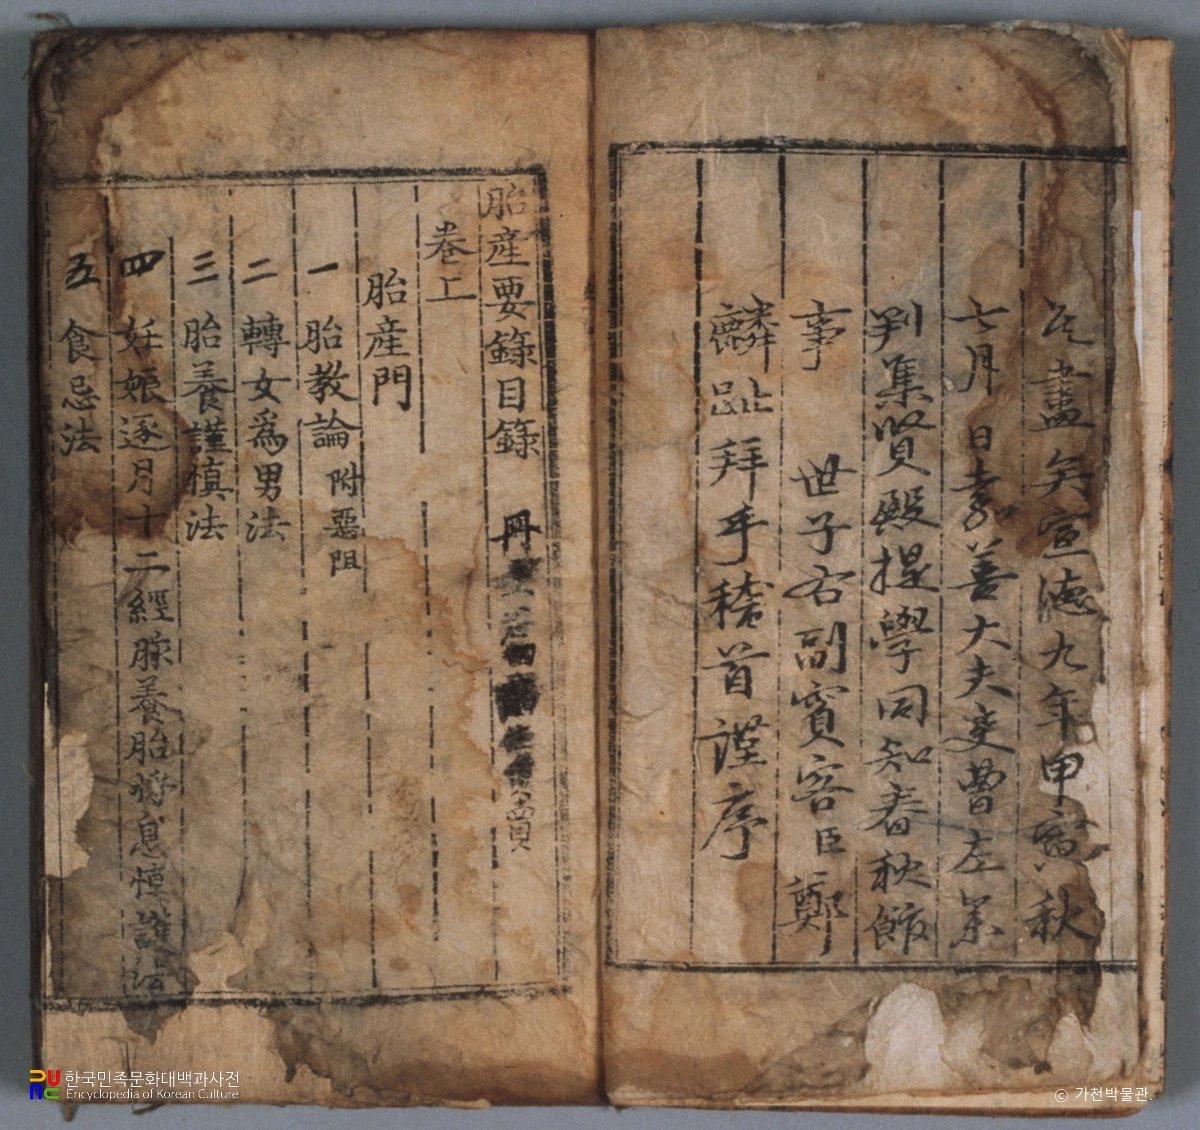 盡矣宣德九年甲寅秋
七月 日嘉善大夫吏曹左叅
判集賢殿提學同知春秋館
事 世子右副賓客臣鄭
麟趾拜手稽首謹序
胎産要錄目錄
卷上
胎産門
一 胎敎論 附惡阻
二 轉女爲男法
三 胎養謹愼法
四 妊娠逐月十二經脉養胎將息愼護法
五 食忌法
한국민족문화대백과사전
Encyclopedia of Korean Culture
© 가천박물관.